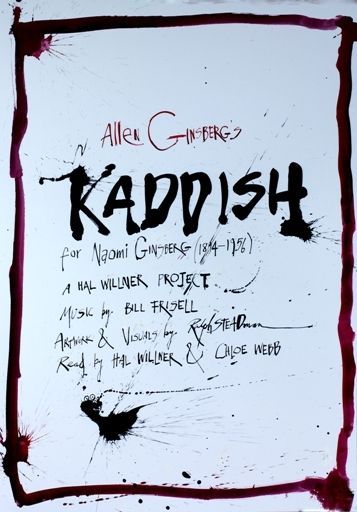 Allen GINSBERG'S
KADDISH
for Naomi GINSBERG (1894-1956)
A HAL WILLNER PROJECT
MUSIC by: BILL FRISELL
ARTWORK & VISUALS by: Ralph STEADman
Read by HAL WILLNER & CHLOE WEBB